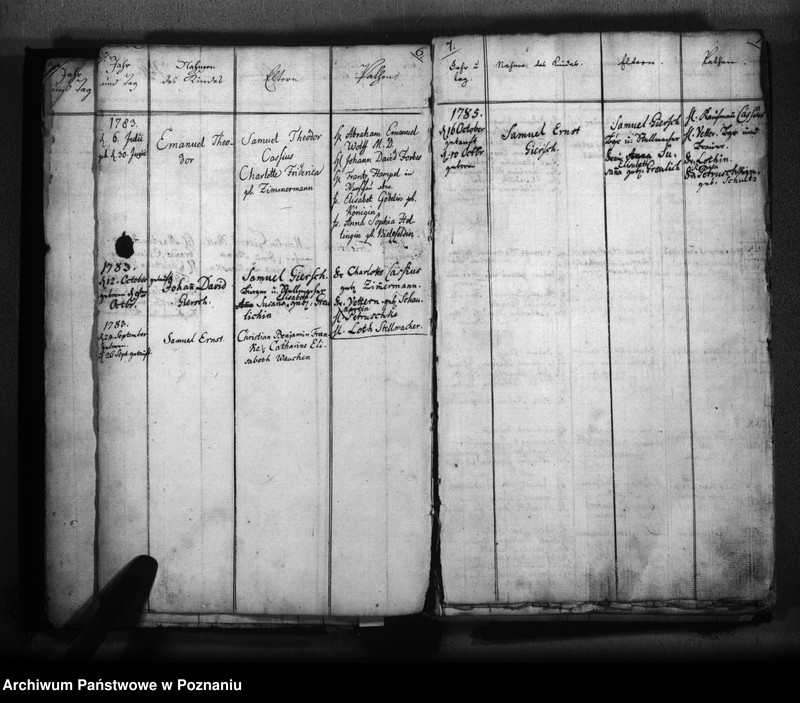 Jahr
und Tag
Jahr
und Tag
Nahmen
des Kindes
Eltern
Pathen
6.
1783.
d. 6. Julii
geb. d. 30. Junii
Emanuel Theo-
dor
Samuel Theodor
Cassius
Charlotte Fridericia
geb. Zimmermann
H. Abraham Emanuel
Wolf M. D.
H. Johann David Forkus
H. Frantz Hampel in
fr. Elisabet
Königin
fr. Anna Sophia Hel-
lingin gb. Nielefeldin
1783.
d. 12. October getauft
geboren d. 9ten
Octbr.
Johañ David
Giersch.
Samuel Giersch.
Burger u.
Elisabeth
Anna Susana, geb. Greu
lichin
Dr. Charlotte Cassius
geb. Zim̃ermann.
Dr. Vettern geb. Schau.
H. Petruschke
H. Loth Stellmacher.
1783.
d. 24 September
geboren.
d. 26 Sept. getauft.
Samuel Ernst
Christian Benjamin Fran
ke, Catharine Eli-
sabeth Wauchen
7.
Jahr u
Tag.
Nahme des Kindes.
Eltern.
Pathen.
1785.
d. 16 October
getauft
d. 10 Octbr.
geboren
Samuel Ernst
Giersch.
Samuel Giersch
Bgr u.
Anna Su-
Elisabeth
sana geb. Greulich
H. Kaufmañ Cassius
H. Vetter. Bgr und
Brauer.
Dr. Lothin.
Dr. Petruschkin,
geb. Schultz
Archiwum Państwowe w Poznaniu